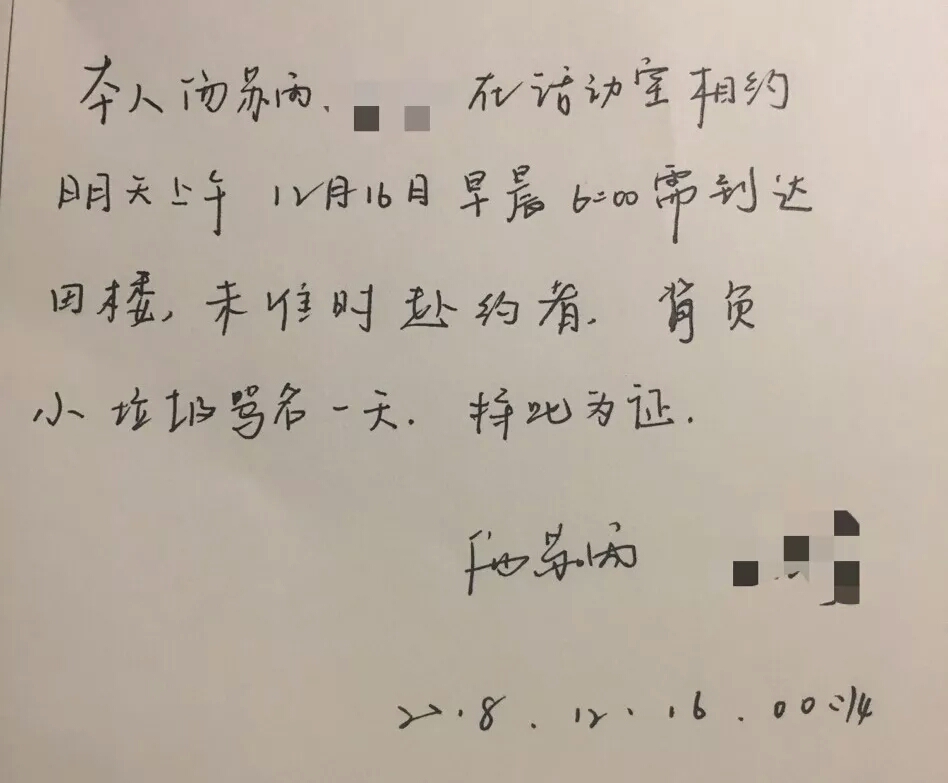 本人 苏丙、 在活动室相约
明天上午 12月16日 早晨 6:00需到达
田楼,未准时赴约者. 背负
小垃圾骂名一天. 特此为证.
苏丙
2018.12.16.00:14